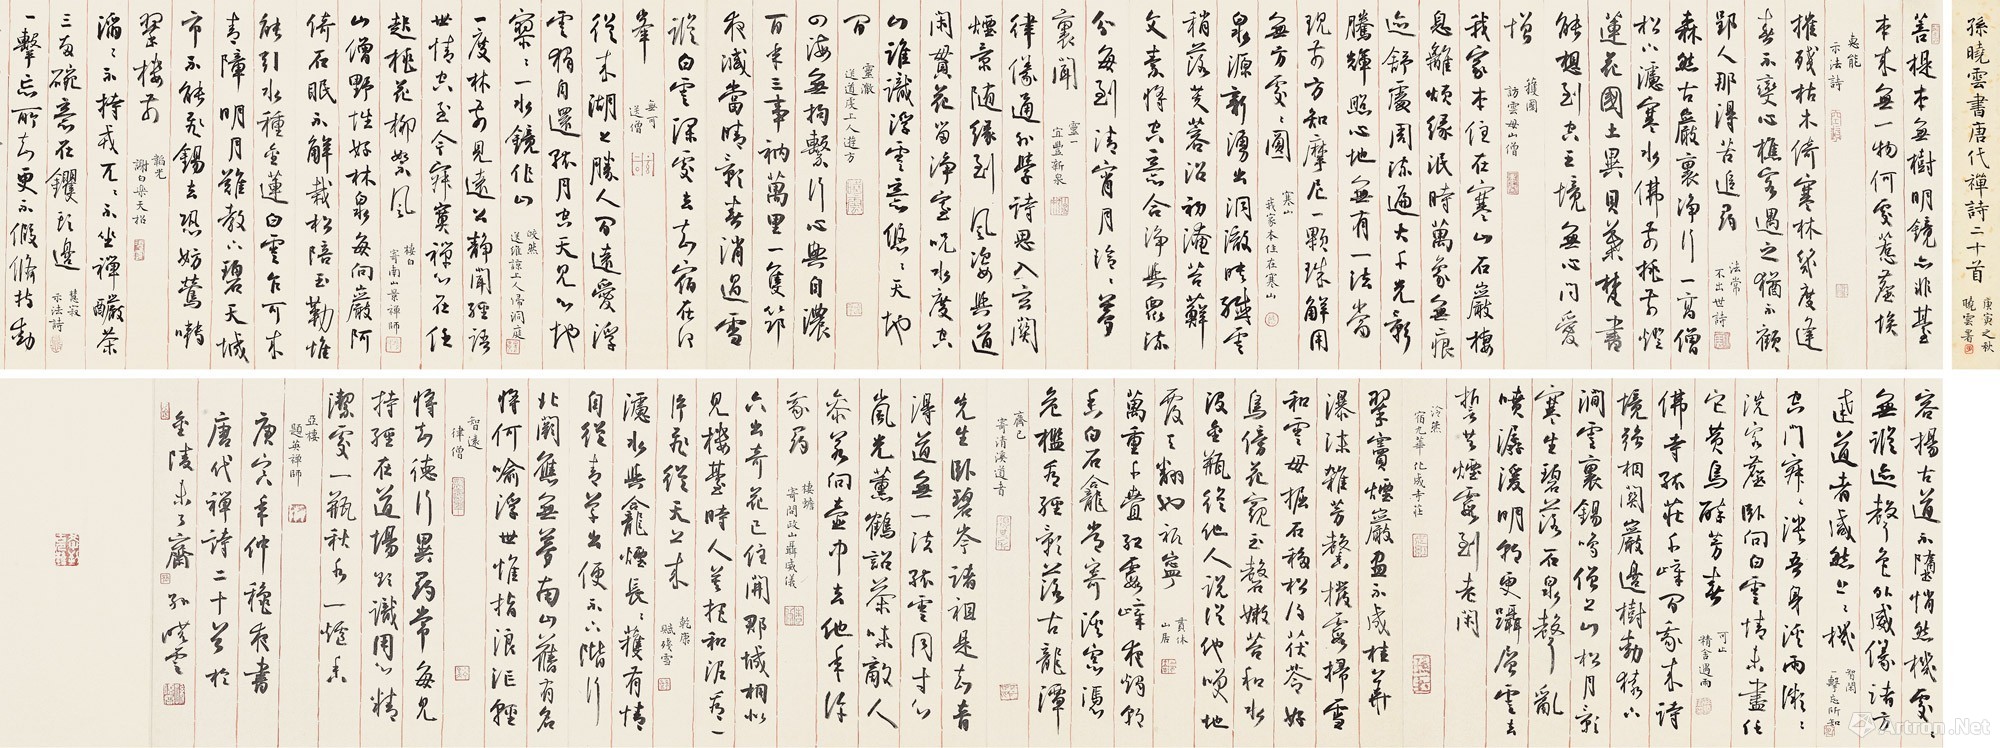 孫曉雲書唐代禪詩二十首
庚寅之秋
曉雲署
菩提本無樹明鏡亦非臺
本來無一物何處惹塵埃
惠能
示法詩
摧殘枯木倚寒林幾度逢
春不變心樵客遇之猶不顧
郢人那得苦追尋
法常
不出世詩
森然古巖裏淨行一高僧
松下濾寒水佛前挑夜燈
蓮花國土異貝葉梵書
能想到空王境無心問愛
憎
護國
訪雲母山僧
我家本住在寒山石巖棲
息離煩緣泯時萬象無痕
跡舒處周流遍大千光影
騰輝照心地無有一法當
現前方知摩尼一顆珠解用
無方處處圓
寒山
我家本住在寒山
泉源新湧出洞澈映纖雲
稍落芙蓉沼初淹苔蘚
文素將空意合淨與眾流
分每到清宵月泠泠夢
裏聞
靈一
宜豐新泉
律儀通外學詩思入玄關
煙景隨緣到風姿與道
閑貫花留淨室咒水度空
山誰識浮雲意悠悠天地
間
靈澈
送道虔上人遊方
四海無拘繫行心興自濃
百年三事衲萬里一隻筇
夜減當晴影春消過雪
蹤白雲深處去知宿在何
峯
無可
送僧
從來湖上勝人間遠愛浮
雲獨自還孤月空天見心地
寥寥一水鏡中山
皎然
送維諒上人歸洞庭
一度林前見遠公靜聞經語
世情空至今寂寞禪心在任
起桃花柳絮風
棲白
寄南山景禪師
山僧野性好林泉每向巖阿
倚石眠不解栽松陪玉勒惟
能引水種金蓮白雲乍可來
青嶂明月難教下碧天城
市不能飛錫去恐妨鶯囀
翠樓前
韜光
謝白樂天招
滔滔不持戒兀兀不坐禪釅茶
三兩碗意在钁頭邊
慧寂
示法詩
一擊忘所知更不假修持動
容揚古道不墮悄然機處處
無蹤跡聲色外威儀諸方
達道者咸然上上機
智閑
一擊忘所知
空門寂寂淡吾身溪雨微微
洗客塵臥向白雲情未盡任
它黃鳥醉芳春
可止
精舍遇雨
佛寺孤莊千嶂間我來詩
境強相關巖邊樹動猿下
澗雲裏錫鳴僧上山松月影
寒生碧落石泉聲亂
噴潺湲明朝更躡層雲去
誓共煙霞到老閑
泠然
宿九華化成寺莊
翠竇煙巖畫不成桂華
瀑沫雜芳馨撥霞掃雪
和雲母掘石移松得茯苓好
鳥傍花窺玉磬嫩苔和水
沒金瓶從他人說從他笑地
覆天翻也祇寧
貫休
山居
萬重千疊紅霞嶂夜燭朝
香白石龕常寄溪窗憑
危檻看經影落古龍潭
齊己
寄清溪道者
先生臥碧岑諸祖是知音
得道無一法孤雲同寸心
嵐光薰鶴詔茶味敵人
參若向壺中去他年許
我尋
棲蟾
寄問政山聶威儀
六出奇花已住開郡城相次
見樓臺時人莫把和泥看一
片飛從天上來
乾康
賦殘雪
濾水與龕煙長長護有情
自從青草出便不下階行
北闕應無夢南山舊有名
將何喻浮世惟指浪漚輕
智遠
律僧
將知德行異尋常每見
持經在道場欲識用心精
潔處一瓶秋水一爐香
亞棲
題英禪師
庚寅年仲穐夜書
唐代禪詩二十首於
金陵未了齋孫曉雲
Artron.Net